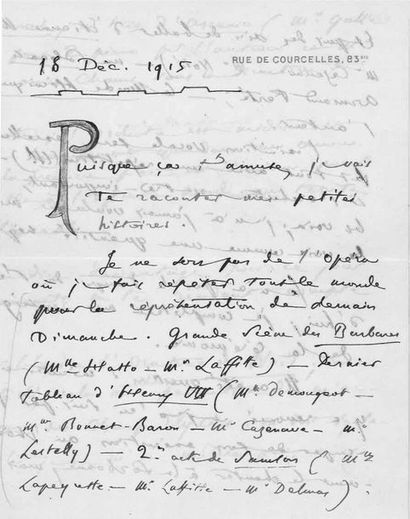 RUE DE COURCELLES, 83BIS
18 Déc. 1915
Puisque ça t'amuse, je vais
te raconter mes petites
histoires.
Je ne sors pas de l'opéra
où je fais répéter tout le monde
pour la représentation de demain
Dimanche. Grande scène des Barbares
(Mlle Hatto – Mr Laffitte) – Dernier
tableau d'Henry VIII (Mlle Demougeot –
Mme Bonnet-Baron – Mr Cazenave – Mr
Lestelly) – 2me acte de Samson (Mme
Lapeyrette – Mr Laffitte – Mr Delmas).